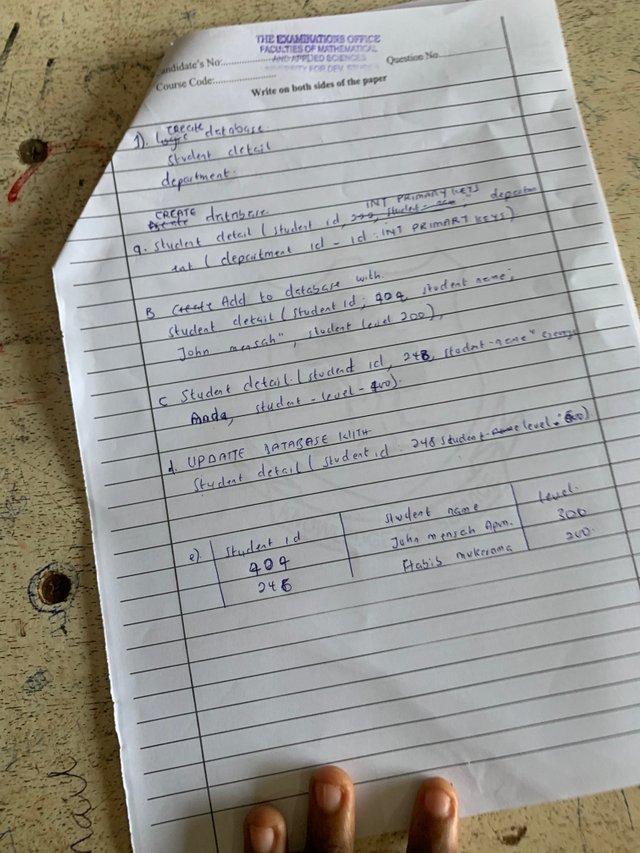 THE EXAMINATIONS OFFICE
FACULTIES OF MATHEMATICAL
AND APPLIED SCIENCES
UNIVERSITY FOR DEV. STUDIES
andidate's No:
Question No.
Course Code:
Write on both sides of the paper
1). CREATE database.
student detail
department.
CREATE database
a. student detail (student id, INT PRIMARY KEYS
ent (department id - id : INT PRIMARY KEYS)
B Add to database with.
student detail (student id; 404, student name;
John mensah", student level 300),
C Student detail. (student id, 248, student-name"
Anda, student - level - 400).
d. UPDATTE DATABASE WITH
Student detail (student id : 248 student level :
e). Student id student name Level.
404 John mensah Apm. 300
248 Habib mukerama 200.